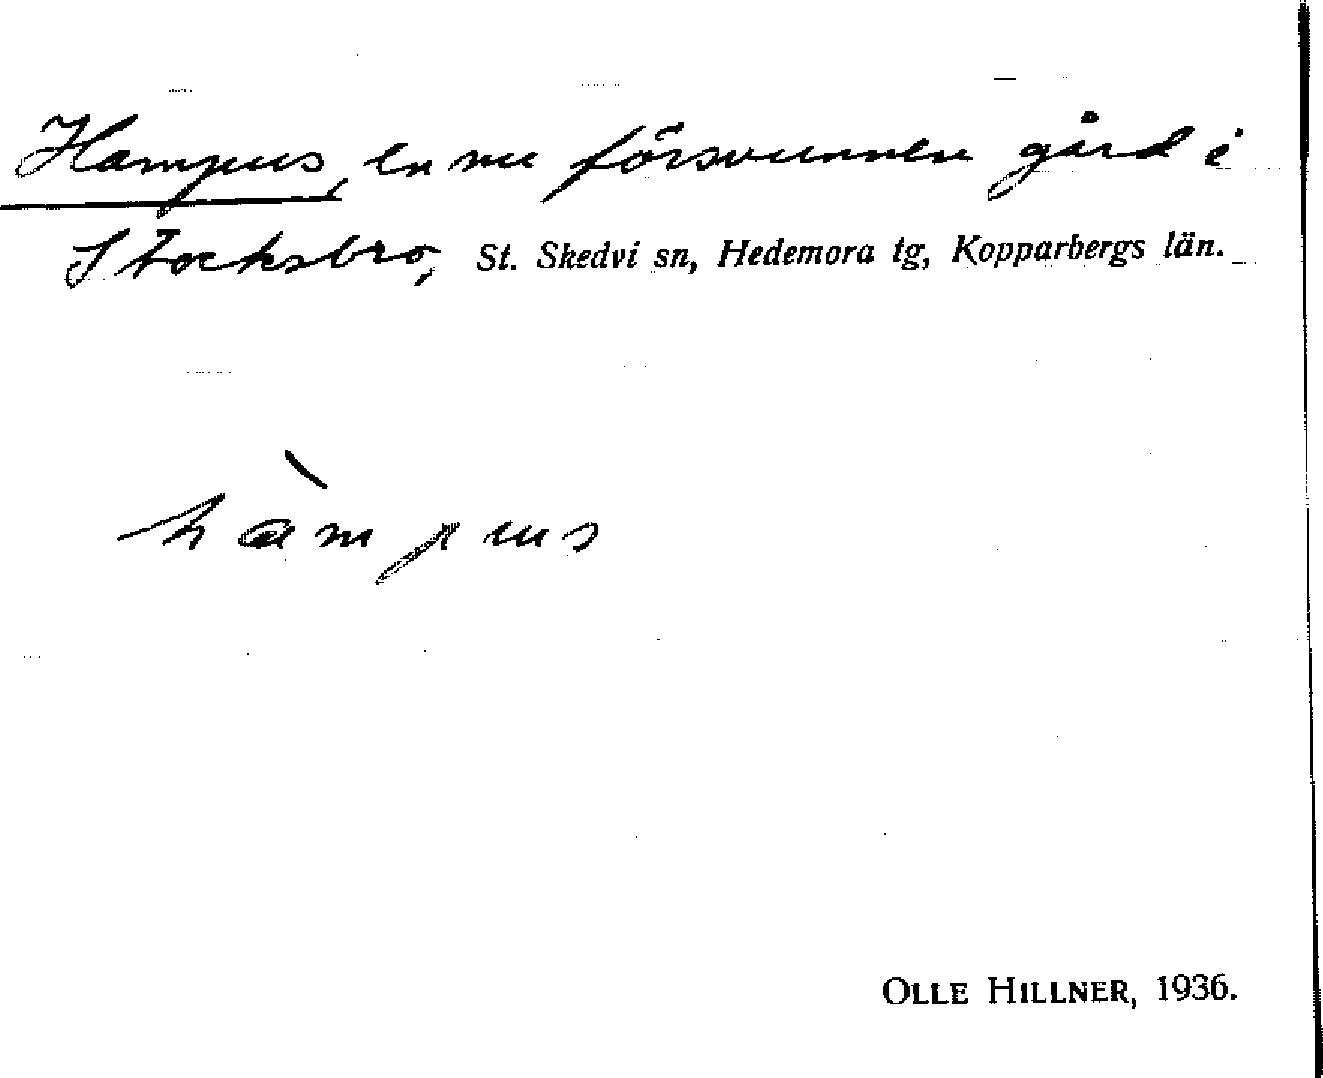 Hampus, en nu försvunnen gård i
Stocksbro, St. Skedvi sn, Hedemora tg, Kopparbergs län.
hàmpus
OLLE HILLNER, 1936.